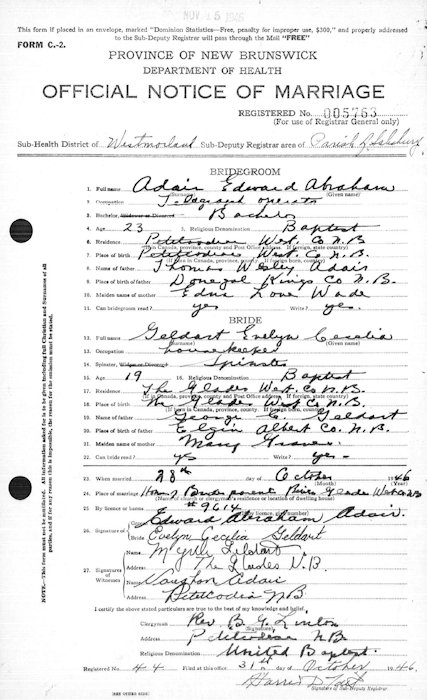 NOV 15 1946
This form if placed in an envelope, marked "Dominion Statistics—Free, penalty for improper use, $300," and properly addressed
to the Sub-Deputy Registrar will pass through the Mail "FREE"
FORM C.-2.
PROVINCE OF NEW BRUNSWICK
DEPARTMENT OF HEALTH
OFFICIAL NOTICE OF MARRIAGE
REGISTERED No. 005763
(For use of Registrar General only)
Sub-Health District of Westmorland Sub-Deputy Registrar area of Parish of Salisbury
BRIDEGROOM
1. Full name Adair Edward Abraham
(Surname) (Given name)
2. Occupation Telegraph operator
3. Bachelor, Widower or Divorced Bachelor
4. Age 23 5. Religious Denomination Baptist
6. Residence Petitcodiac West. Co N.B.
7. Place of birth Petitcodiac West. Co N.B.
8. Name of father Thomas Wesley Adair
9. Place of birth Donegal Kings Co N.B.
10. Maiden name of mother Edna Wade
11. Can bridegroom read? yes Write? yes.
BRIDE
12. Full name Geldart Evelyn Cecelia
(Surname) (Given name)
13. Occupation housekeeper
14. Spinster, Widow or Divorced Spinster
15. Age 19 16. Religious Denomination Baptist
17. Residence The Glades West. Co N.B.
18. Place of birth The Glades West Co N.B.
19. Name of father George E. Geldart
20. Place of birth Elgin Albert Co. N.B.
21. Maiden name of mother Mary
22. Can bride read? yes Write? yes-
23. When married 28th day of October 1946
(Month) (Year)
24. Place of marriage Home of Brides parent The Glades West Co NB
(Name of church or clergyman's residence or location of dwelling house)
25. By licence or banns #9614
(By licence, give number)
26. Signature of Edward Abraham Adair.
Evelyn Cecelia Geldart
27. Signatures of Witnesses Myrtle Geldart
Address The Glades N.B.
Vaughan Adair
Address Petitcodiac NB
I certify the above stated particulars are true to the best of my knowledge and belief.
Clergyman Rev. B. G.
(Signature)
Address Petitcodiac NB
Religious Denomination United Baptist
Registered No. 44 Filed at this office 31st day of October 1946.
Signature of Sub-Deputy Registrar
(SEE OTHER SIDE)
NOTE.—This form must not be mutilated. All information asked for is to be given including full Christian and Surnames of all
parties, and if for any reason this is impossible, the reason for the omission must be stated.